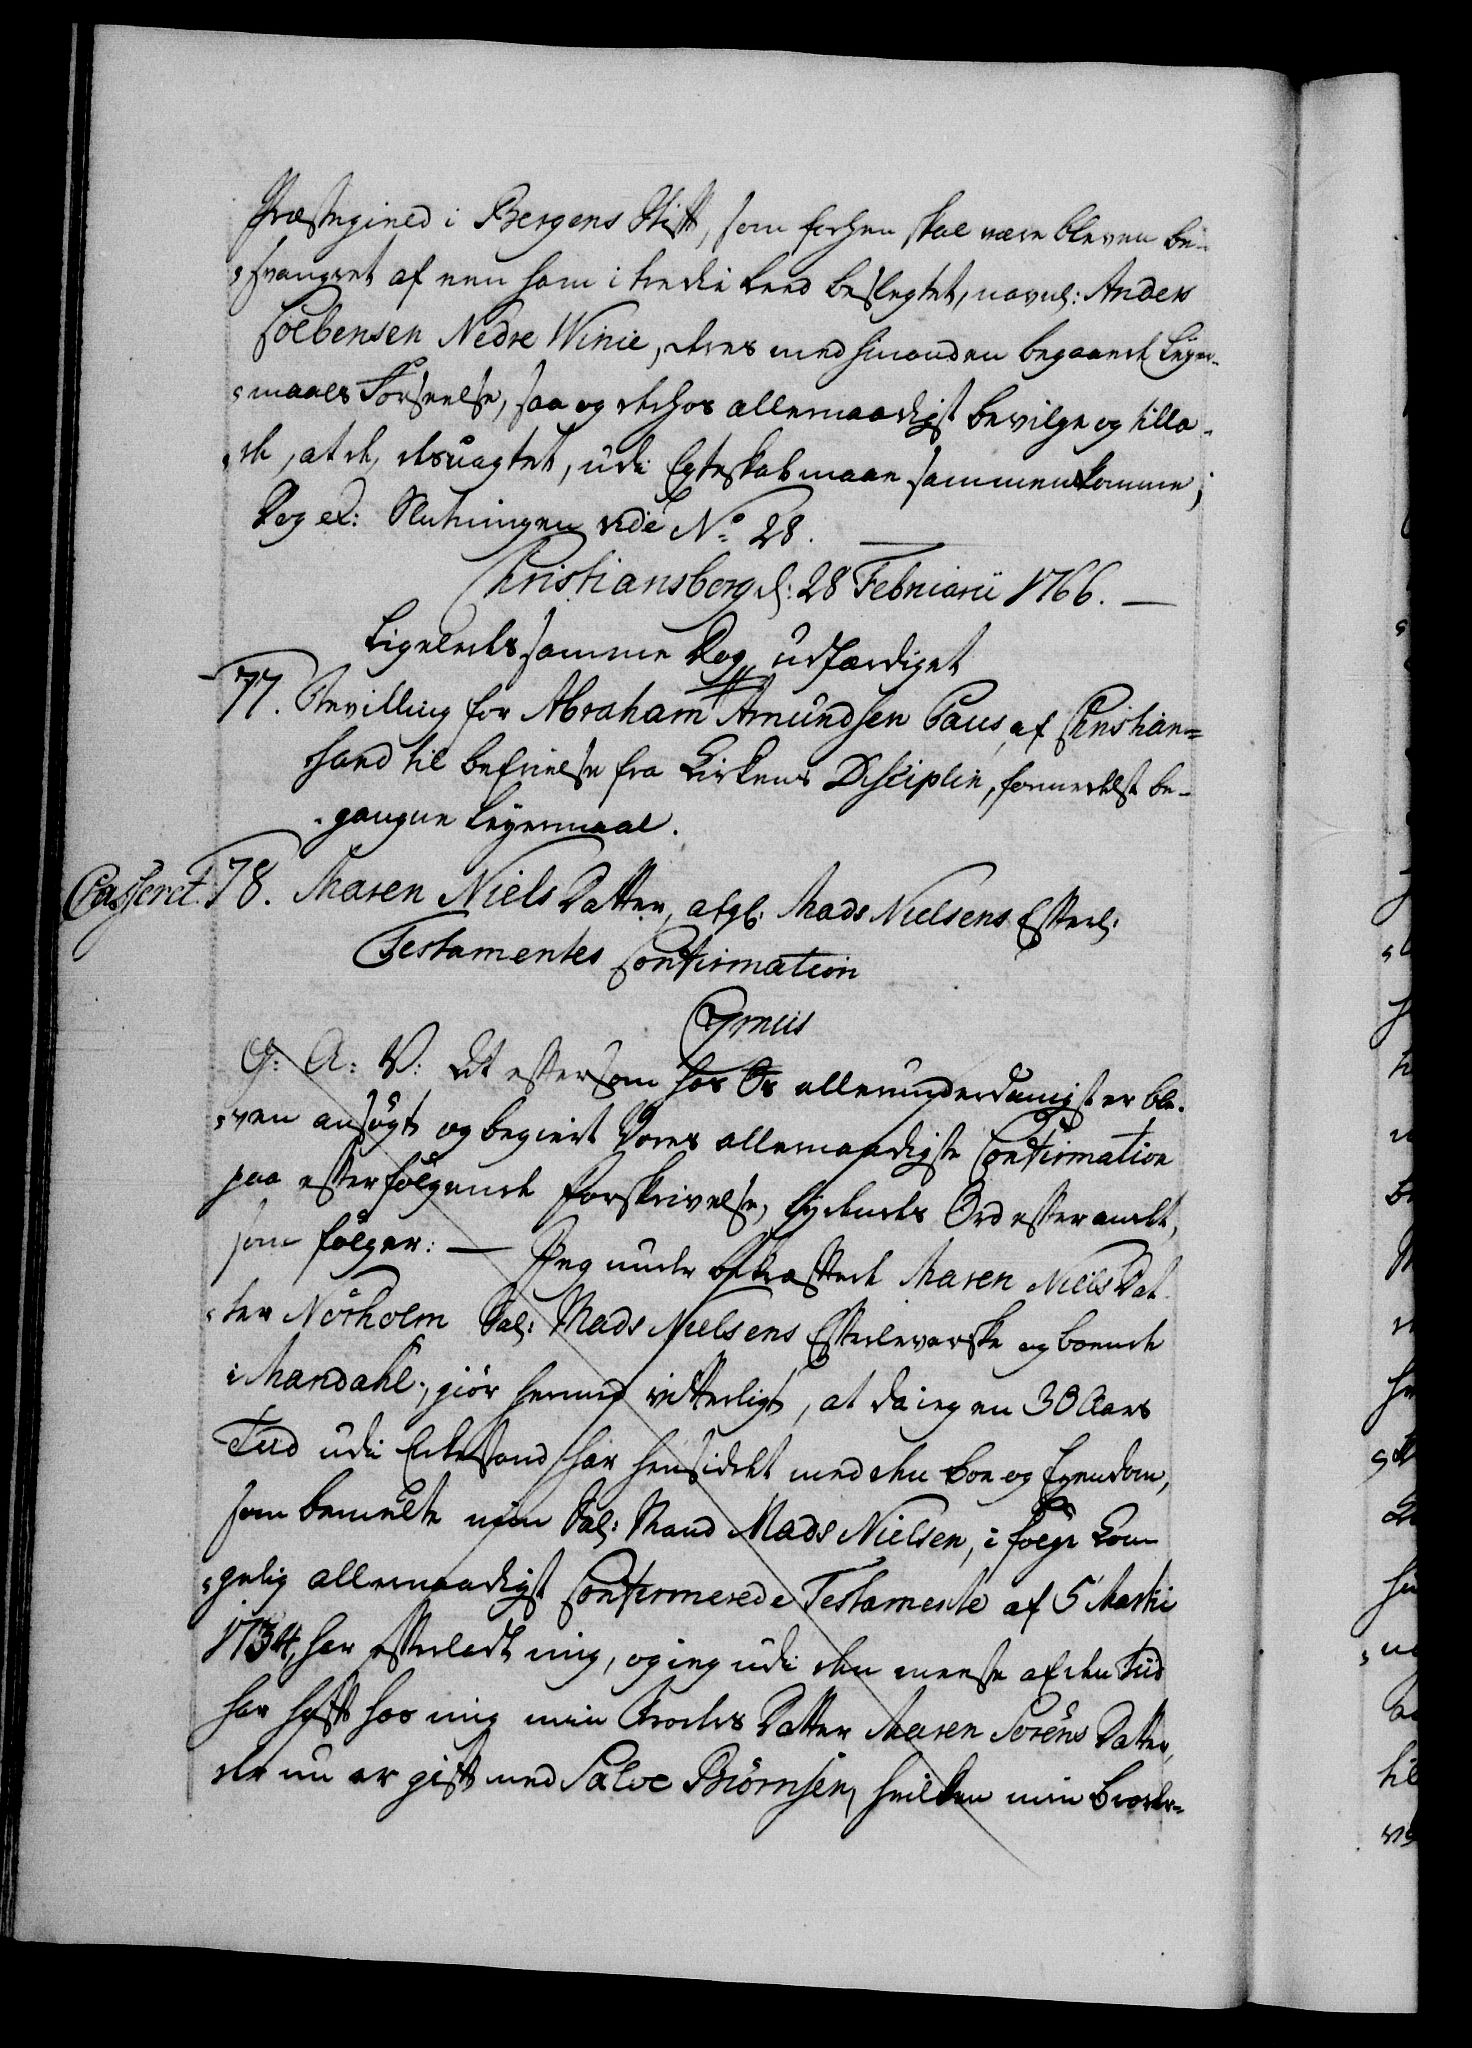 Præstegield i Bergens Stift, som forhen skal være bleven be-
svangret af een ham i tredie Leed beslegtet, navnl: Anders
Colbensen Nedre Winie, deres med hinanden begaaede Leyer-
maals Forseelse, saa og derhos allernaadigst bevilge og tilla-
de, at de, desuagtet, udi Egteskab maae sammenkomme;
Dog etc: Slutningen vide No 28.
Christiansborg d: 28 Februarii 1766.
Ligeledes samme Dag udfærdiget
77. Bevilling for Abraham Amundsen Paus, af Christian-
sand til befrielse fra Kirkens Disciplin, formedelst be-
gangne Leyermaal.
Casseret. 78. Maren Niels Datter, afgl: Mads Nielsens Efterl:
Testamentes Confirmation
Gratis
G: A: V: At eftersom hos Os allerunderdanigst er ble-
ven ansøgt og begiert Vores allernaadigste Confirmation
paa efterfølgende Forskrivelse, lydendes Ord efter andet,
som følger: — Jeg underskrevne Maren Niels Dat-
ter Nörholm Sal: Mads Nielsens Efterleverske og boende
i Mandahl, giör hermed vitterligt, at da ieg en 30 Aars
Tiid udi Enkestand har hensiddet med den Boe og Eyendom,
som bemelte min Sal: Mand Mads Nielsen, i følge Kon-
gelig allernaadigst Confirmerede Testamente af 5 Martii
1734, har efterladt mig, og ieg udi den meeste af den Tiid
har haft hos mig min Broders Datter Maren Sörens Datter,
der nu er gift med Salve Biörnsen, hvilken min Broder-